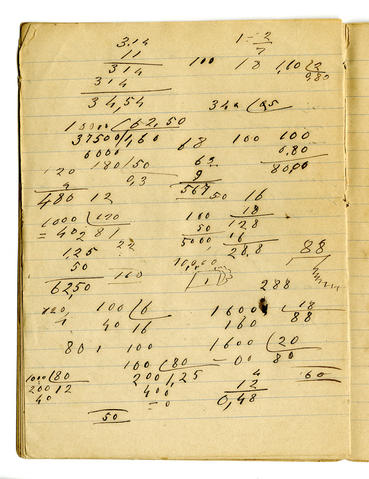 3,14 1 - 2
11 7
314 100 18 1,10 2
314 0,80
34,54
10000 62,50
37500 1,60 68 100 100
6000 0,80
120 180 50 63 8000
0,3 9
480 12 567
50 16
1000 120 100 18
= 40 281 50 128
1,25 22 5000 16
50 10,000 28,8 88
6250 100 1
288
100 6 1600 18
40 16 160 88
80 1 100 1600 20
100 80 - 00 80
1000 80 200 1,25 4 60
200 12 400 12
40 - 0 0,48
50